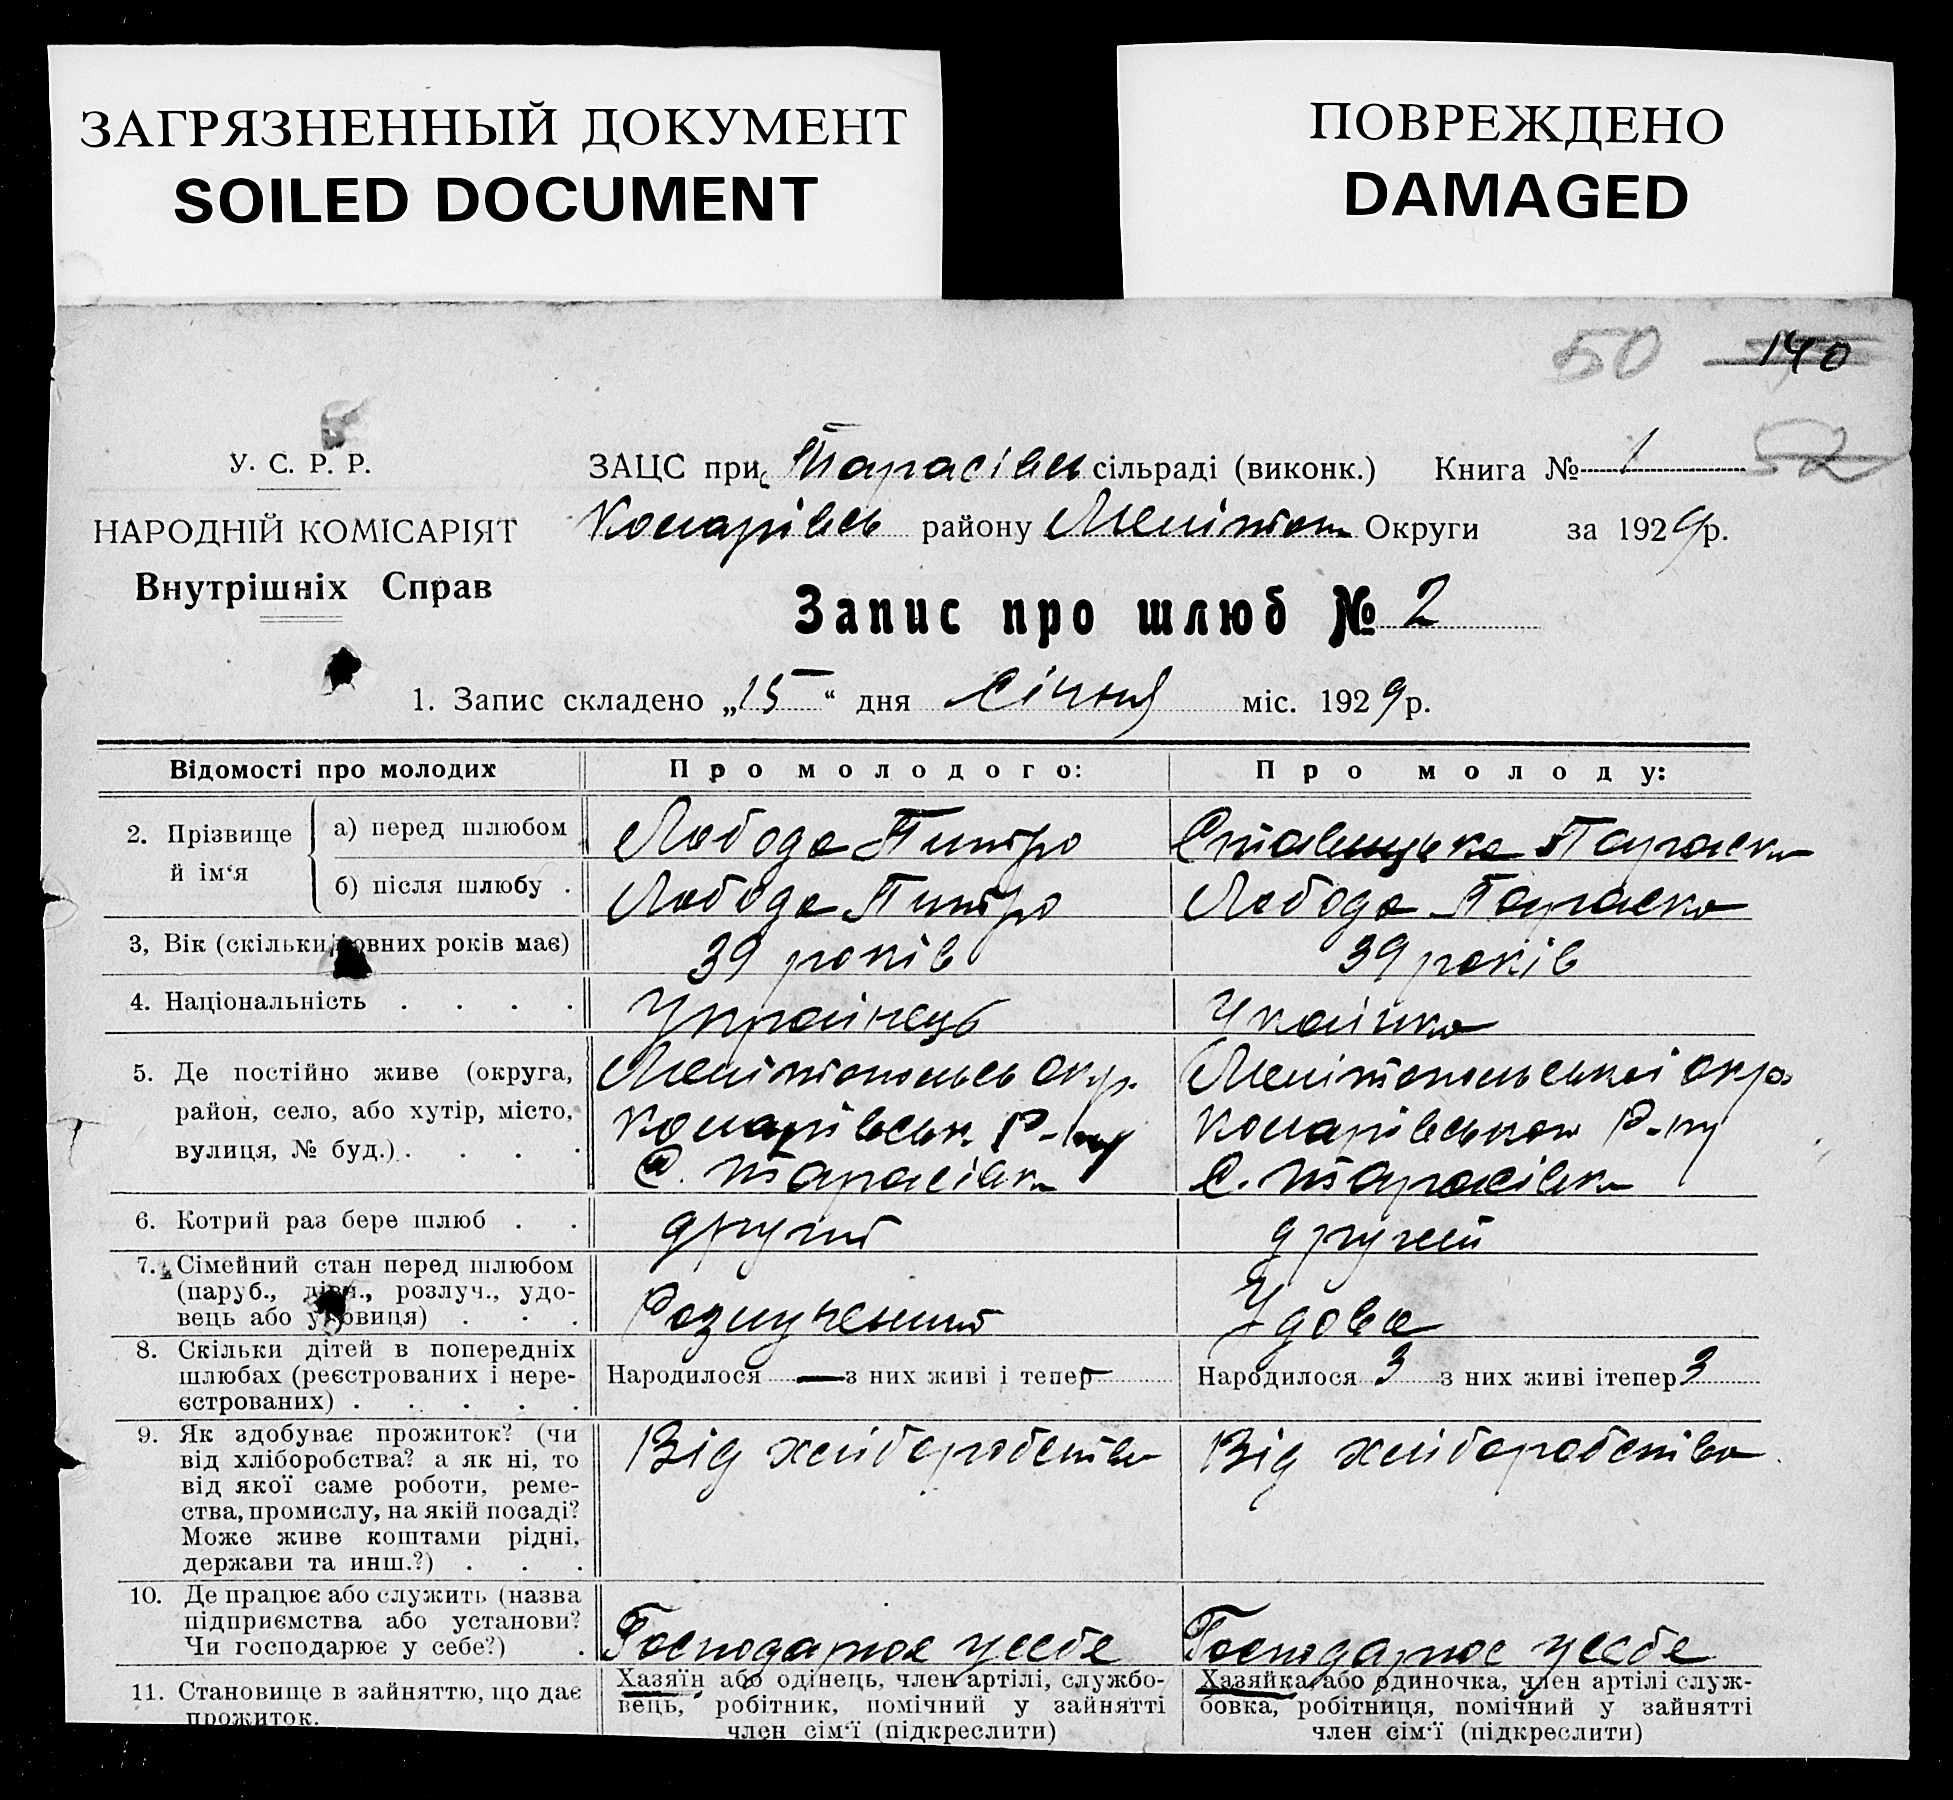 ЗАГРЯЗНЕННЫЙ ДОКУМЕНТ
SOILED DOCUMENT
ПОВРЕЖДЕНО
DAMAGED
50 140
52
У. С. Р. Р.
НАРОДНІЙ КОМІСАРІЯТ
Внутрішніх Справ
ЗАЦС при Тарасівсь сільраді (виконк.) Книга № 1
Комарівсь району Меліттоп Округи за 1929 р.
Запис про шлюб № 2
1. Запис складено „15“ дня Січня міс. 1929 р.
Відомості про молодих Про молодого: Про молоду:
2. Прізвище й ім‘я
а) перед шлюбом Лобода Питро Ставицька Параска
б) після шлюбу . Лобода Питро Лобода Параска
3, Вік (скільки повних років має) 39 років 39 років
4. Національність . . . . Украінець Украінка
5. Де постійно живе (округа,
район, село, або хутір, місто,
вулиця, № буд.) . . . .
Мелітопольсь окр.
Комарівськ. Р-ну
с. Тарасівка
Мелітопольськоі окр.
Комарівського Р-ну
с. Тарасівка
6. Котрий раз бере шлюб . . другий другий
7. Сімейний стан перед шлюбом
(паруб., дівч., розлуч., удо-
вець або удовиця) . . .
Розлучений Удова
8. Скільки дітей в попередніх
шлюбах (реєстрованих і нере-
єстрованих) . . . . .
Народилося — з них живі і тепер —
Народилося 3 з них живі ітепер 3
9. Як здобуває прожиток? (чи
від хліборобства? а як ні, то
від якої саме роботи, реме-
ства, промислу, на якій посаді?
Може живе коштами рідні,
держави та инш.?) . . .
Від хліборобства Від хліборобства
10. Де працює або служить (назва
підприємства або установи?
Чи господарює у себе?) .
Господарює усебе Господарює усебе
11. Становище в зайняттю, що дає
прожиток.
Хазяїн або одінець, член артілі, службо-
вець, робітник, помічний у зайнятті
член сім‘ї (підкреслити)
Хазяйка, або одиночка, член артілі служ-
бовка, робітниця, помічний у зайнятті
член сім‘ї (підкреслити)